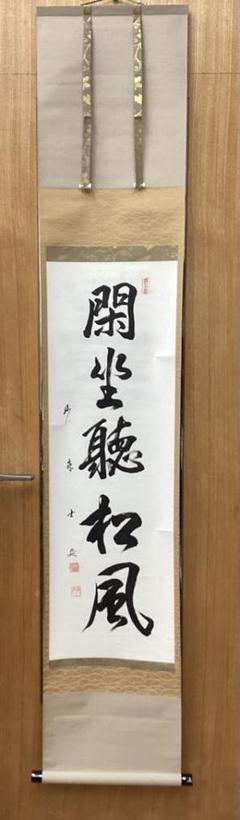 閑坐聽松風